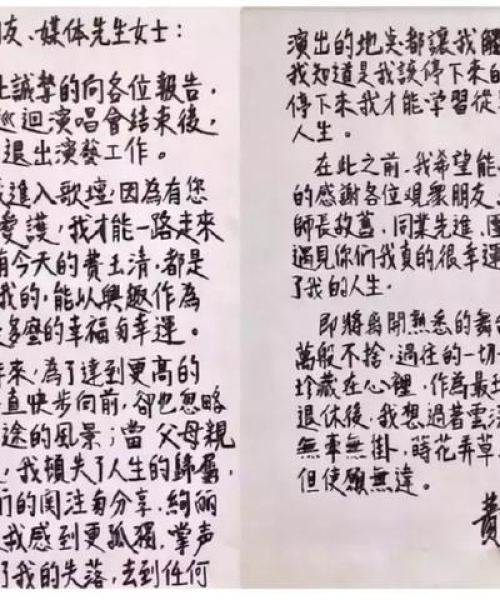 友、媒体先生女士：
此誠摯的向各位報告，
巡迴演唱會結束後，
退出演藝工作。
進入歌壇，因為有您
愛護，我才能一路走來
有今天的費玉清，都是
我的，能以興趣作為
多麼的幸福与幸運。
年來，為了達到更高的
直快步向前，卻也忽略
途的風景；當父母親
，我頓失了人生的歸屬，
們的関注与分享，絢爛
我感到更孤獨，掌声
了我的失落，去到任何
演出的地点都讓我觸
我知道是我該停下來的
停下來我才能学習從
人生。
在此之前，我希望能
的感謝各位观衆朋友、
師長故舊，同業先進，
遇見你们我真的很幸運
了我的人生。
即將離開熟悉的舞台
萬般不捨，過往的一切
珍藏在心裡，作為最
退休後，我想過著雲
無牽無掛，蒔花弄草
但使願無違。
費